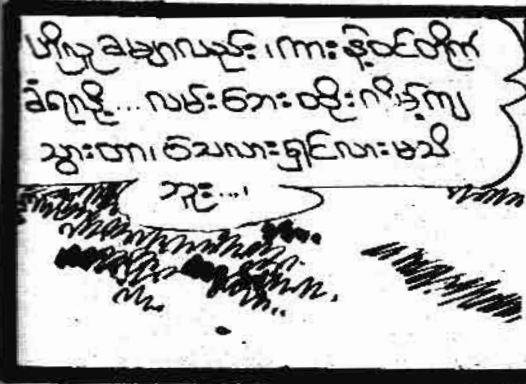 ဟိုလူခမျာလည်း၊ ကားနဲ့ဝင်တိုက်
ခံရလို့... လမ်းဘေးထိုးလိမ့်ကျ
သွားတာ၊ သေလားရှင်လားမသိ
ဘူး...၊